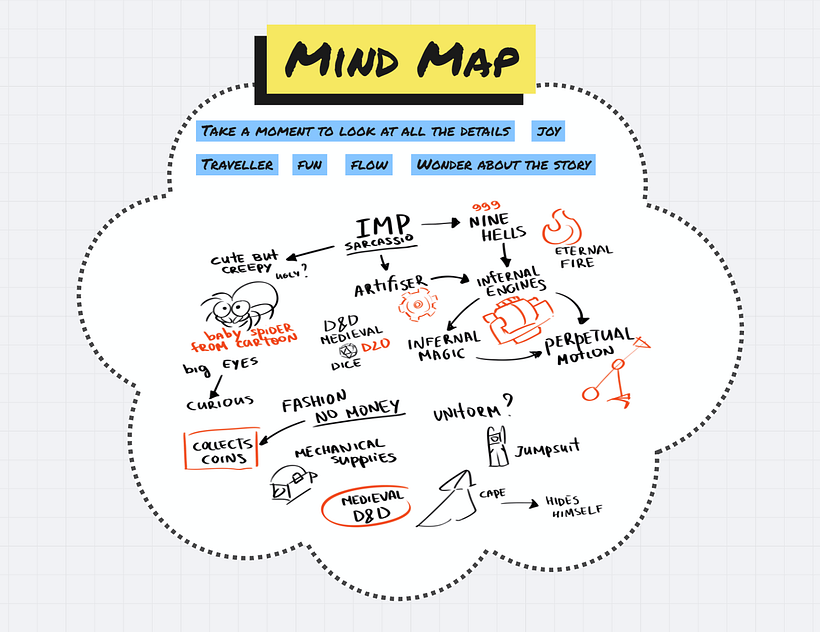 MIND MAP
TAKE A MOMENT TO LOOK AT ALL THE DETAILS JOY
TRAVELLER FUN FLOW WONDER ABOUT THE STORY
IMP
SARCASSIO
999
NINE
HELLS
ETERNAL
FIRE
CUTE BUT
CREEPY
UGLY?
ARTIFISER
INFERNAL
ENGINES
baby SPIDER
FROM CARTOON
D&D
MEDIEVAL
D20
DICE
INFERNAL
MAGIC
PERPETUAL
MOTION
big EYES
CURIOUS
FASHION
NO MONEY
UNIFORM?
COLLECTS
COINS
MECHANICAL
SUPPLIES
JUMPSUIT
MEDIEVAL
D&D
CAPE
HIDES
HIMSELF